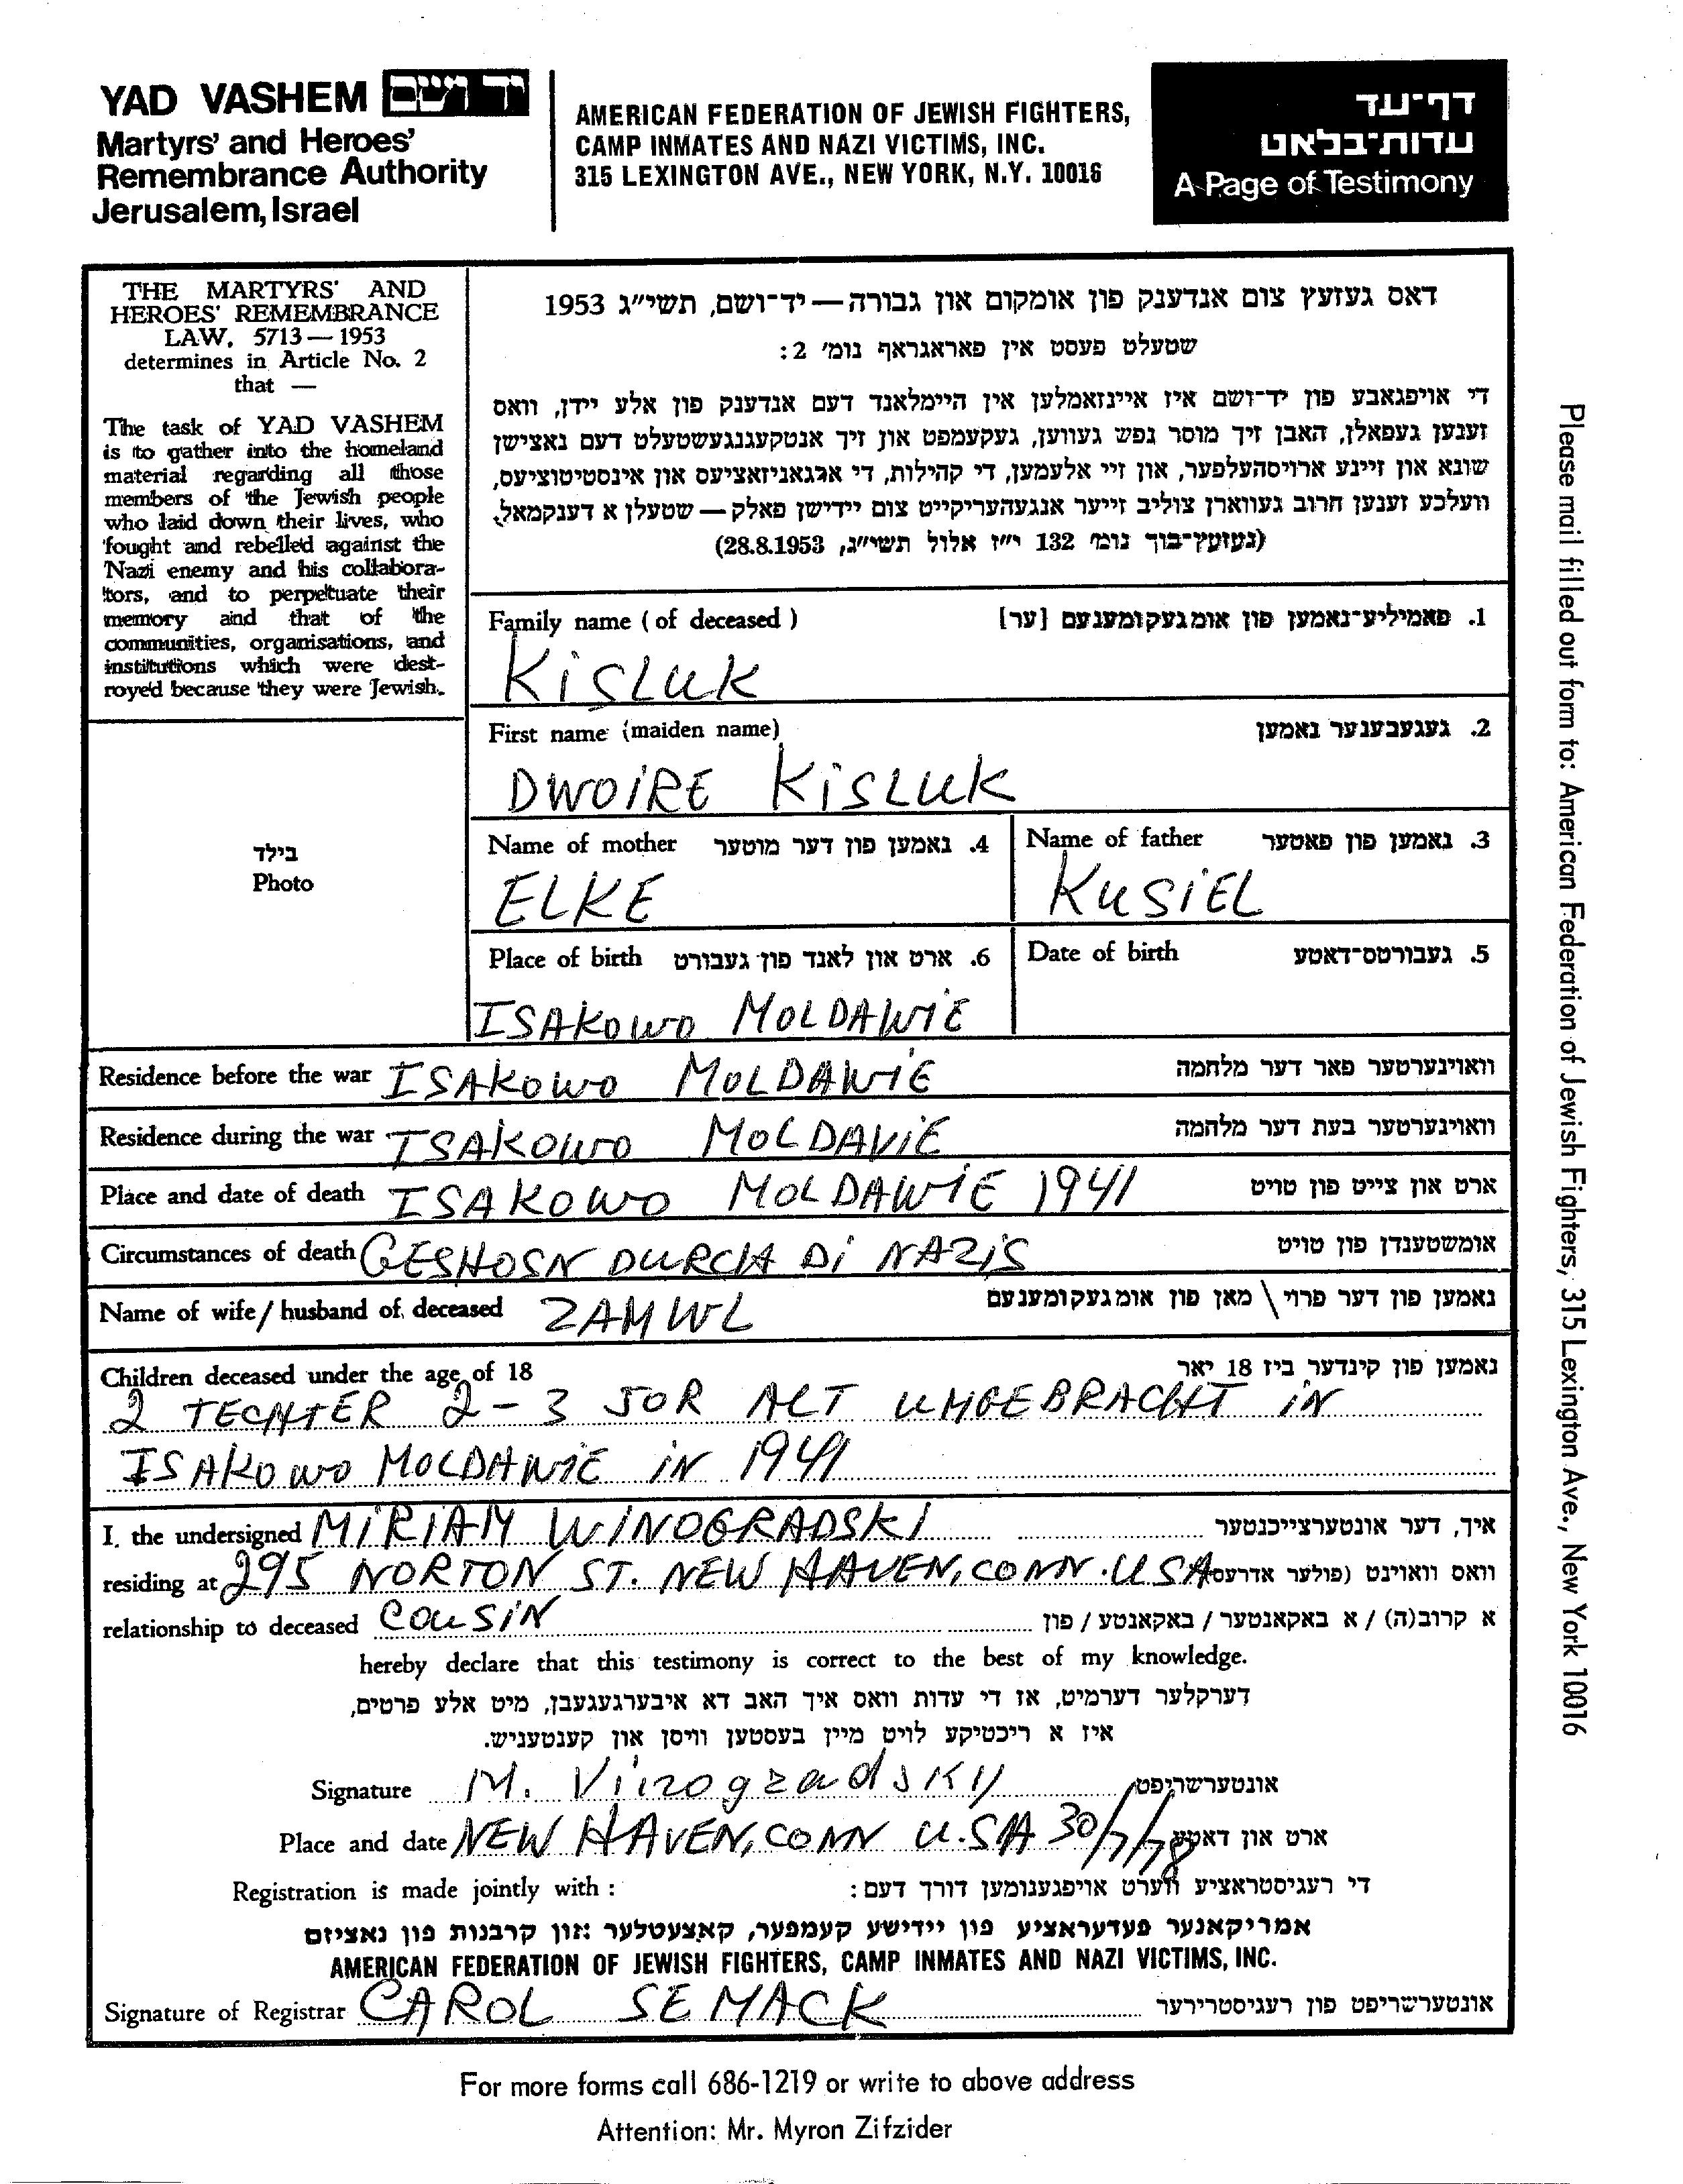 YAD VASHEM יד ושם
Martyrs' and Heroes'
Remembrance Authority
Jerusalem, Israel
AMERICAN FEDERATION OF JEWISH FIGHTERS,
CAMP INMATES AND NAZI VICTIMS, INC.
315 LEXINGTON AVE., NEW YORK, N.Y. 10016
דף-עד
עדות-בלאט
A Page of Testimony
THE MARTYRS' AND
HEROES' REMEMBRANCE
LAW, 5713 — 1953
determines in Article No. 2
that —
The task of YAD VASHEM
is to gather into the homeland
material regarding all those
members of the Jewish people
who laid down their lives, who
fought and rebelled against the
Nazi enemy and his collabora-
tors, and to perpetuate their
memory and that of the
communities, organisations, and
institutions which were dest-
royed because they were Jewish.
דאס געזעץ צום אנדענק פון אומקום און גבורה — יד-ושם, תשי"ג 1953
שטעלט פעסט אין פאראגראף נומ' 2:
די אויפגאבע פון יד-ושם איז איינזאמלען אין היימלאנד דעם אנדענק פון אלע יידן, וואס
זענען געפאלן, האבן זיך מוסר נפש געווען, געקעמפט און זיך אנטקעגנגעשטעלט דעם נאצישן
שונא און זיינע ארויסהעלפער, און זיי אלעמען, די קהילות, די ארגאניזאציעס און אינסטיטוציעס,
וועלכע זענען חרוב געווארן צוליב זייער אנגעהעריקייט צום יידישן פאלק — שטעלן א דענקמאל.
(געזעץ-בוך נומ' 132 י"ז אלול תשי"ג, 28.8.1953)
Family name (of deceased) 1. פאמיליע-נאמען פון אומגעקומענעם [ער]
KiSLUK
First name (maiden name) 2. געגעבענער נאמען
DWOiRE KiSLUK
Name of mother 4. נאמען פון דער מוטער
ELKE
Name of father 3. נאמען פון פאטער
KUSiEL
Place of birth 6. ארט און לאנד פון געבורט
ISAKOWO MOLDAWiE
Date of birth 5. געבורטס-דאטע
בילד
Photo
Residence before the war ISAKOWO MOLDAWiE וואוינערטער פאר דער מלחמה
Residence during the war ISAKOWO MOLDAViE וואוינערטער בעת דער מלחמה
Place and date of death ISAKOWO MOLDAWiE 1941 ארט און צייט פון טויט
Circumstances of death GESHOSN DURCH Di NAZiS אומשטענדן פון טויט
Name of wife / husband of deceased ZAMWL נאמען פון דער פרוי \ מאן פון אומגעקומענעם
Children deceased under the age of 18 נאמען פון קינדער ביז 18 יאר
2 TECHTER 2-3 JOR ALT UMGEBRACHT iN
ISAKOWO MOLDAWiE iN 1941
I, the undersigned MiRiAM WiNOGRADSKi איך, דער אונטערצייכנטער
residing at 295 NORTON ST. NEW HAVEN, CONN. USA וואס וואוינט (פולער אדרעס
relationship to deceased COUSiN א קרוב(ה) / א באקאנטער / באקאנטע / פון
hereby declare that this testimony is correct to the best of my knowledge.
דערקלער דערמיט, אז די עדות וואס איך האב דא איבערגעגעבן, מיט אלע פרטים,
איז א ריכטיקע לויט מיין בעסטען וויסן און קענטעניש.
Signature M. Vinogradskiy אונטערשריפט
Place and date NEW HAVEN, CONN U.SA 30/7/78 ארט און דאטע
Registration is made jointly with : די רעגיסטראציע ווערט אויפגענומען דורך דעם :
אמריקאנער פעדעראציע פון יידישע קעמפער, קאצעטלער און קרבנות פון נאציזם
AMERICAN FEDERATION OF JEWISH FIGHTERS, CAMP INMATES AND NAZI VICTIMS, INC.
Signature of Registrar CAROL SEMACK אונטערשריפט פון רעגיסטרירער
For more forms call 686-1219 or write to above address
Attention: Mr. Myron Zifzider
Please mail filled out form to: American Federation of Jewish Fighters, 315 Lexington Ave., New York 10016